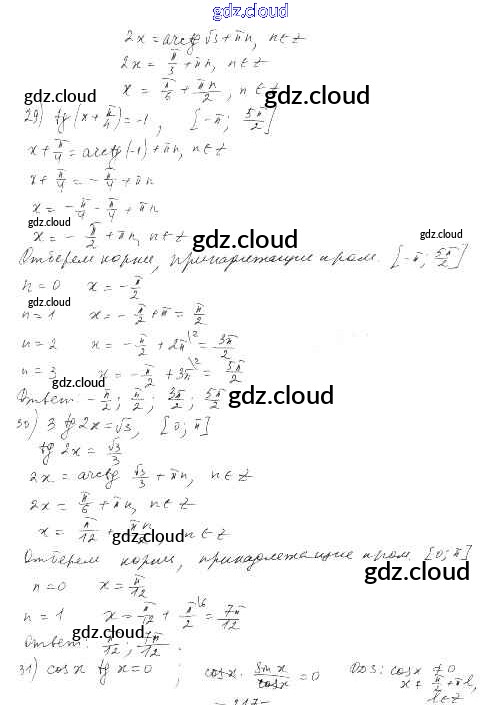 gdz.cloud
2x = arctg √3 + πn, n∈Z
2x = π/3 + πn, n∈Z
x = π/6 + πn/2, n∈Z
gdz.cloud
gdz.cloud
29) tg(x + π/4) = -1, [-π; 5π/2]
x + π/4 = arctg(-1) + πn, n∈Z
x + π/4 = -π/4 + πn
x = -π/4 - π/4 + πn
gdz.cloud
x = -π/2 + πn, n∈Z
gdz.cloud
gdz.cloud
Отберем корни, принадлежащие пром. [-π; 5π/2]
n = 0 x = -π/2
gdz.cloud
n = 1 x = -π/2 + π = π/2
n = 2 x = -π/2 + 2π\2 = 3π/2
n = 3 x = -π/2 + 3π\2 = 5π/2
gdz.cloud
Ответ: -π/2; π/2; 3π/2; 5π/2
gdz.cloud
30) 3 tg 2x = √3, [0; π]
tg 2x = √3/3
2x = arctg √3/3 + πn, n∈Z
2x = π/6 + πn, n∈Z
x = π/12 + πn/2, n∈Z
gdz.cloud
Отберем корни, принадлежащие пром. [0; π]
gdz.cloud
n = 0 x = π/12
n = 1 x = π/12 + π/2\6 = 7π/12
gdz.cloud
Ответ: π/12; 7π/12.
31) cos x tg x = 0; cos x · sin x/cos x = 0 ОДЗ: cos x ≠ 0
x ≠ π/2 + πl,
l∈Z